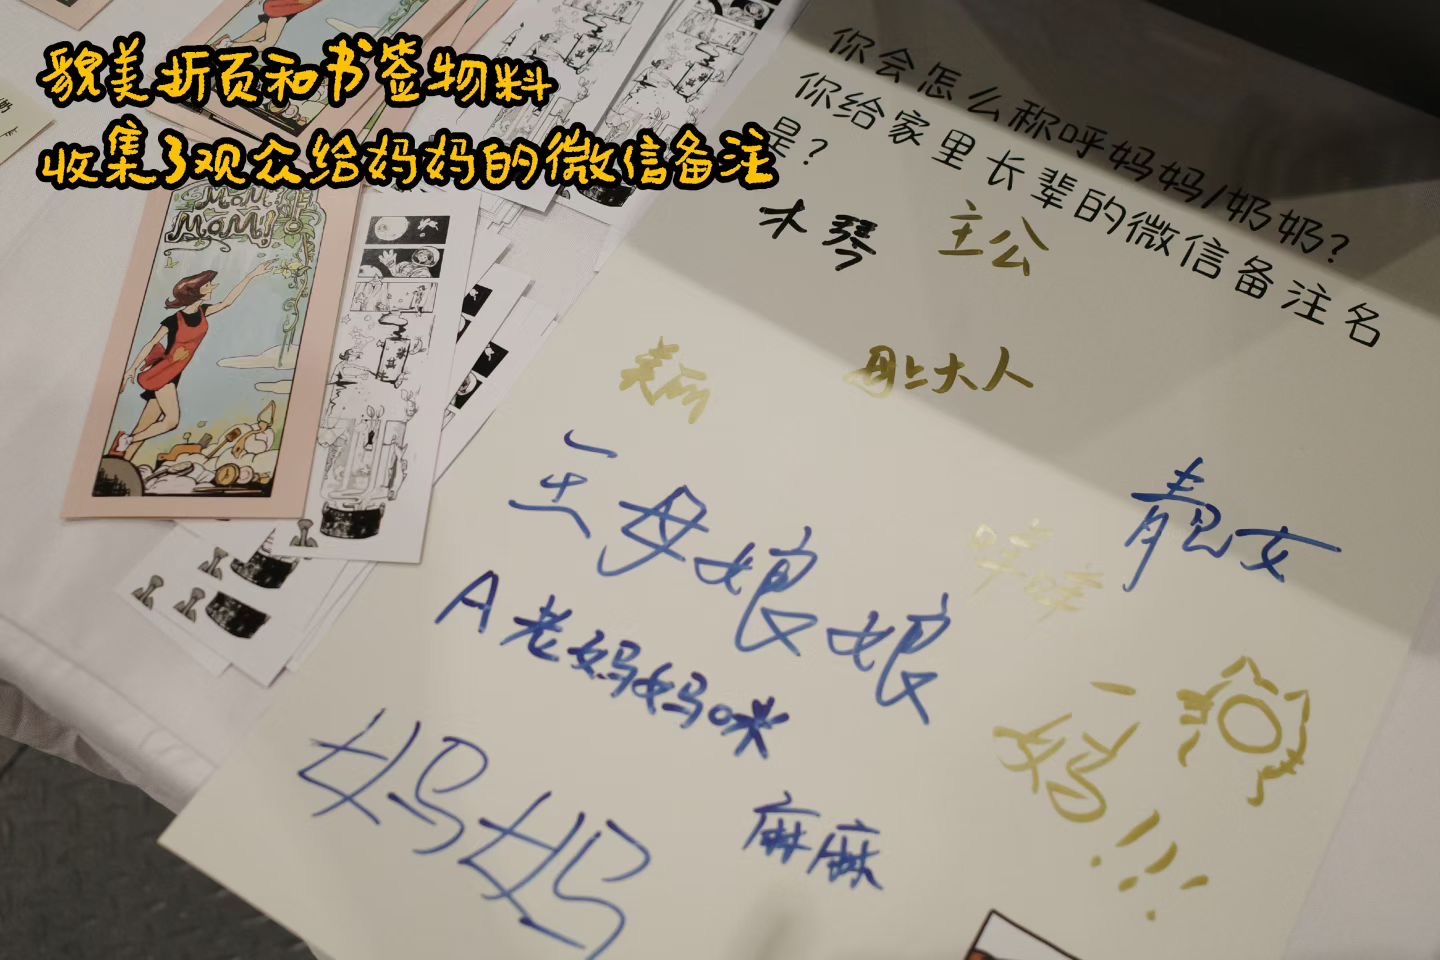 貌美折页和书签物料
收集了观众给妈妈的微信备注
MaM
MaM!
你会怎么称呼妈妈/奶奶?
你给家里长辈的微信备注名
是?
木琴
主公
美丽
母上大人
王母娘娘
靓女
A老妈妈咪
一妈!!!
妈妈
麻麻